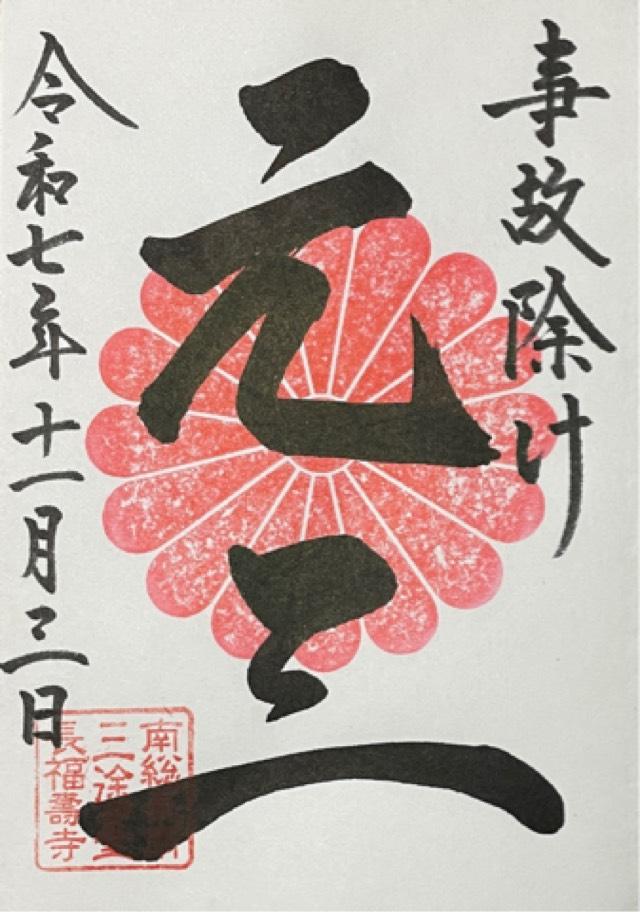 事故除け
元三
令和七年十一月三日
南総
三途
長福壽寺